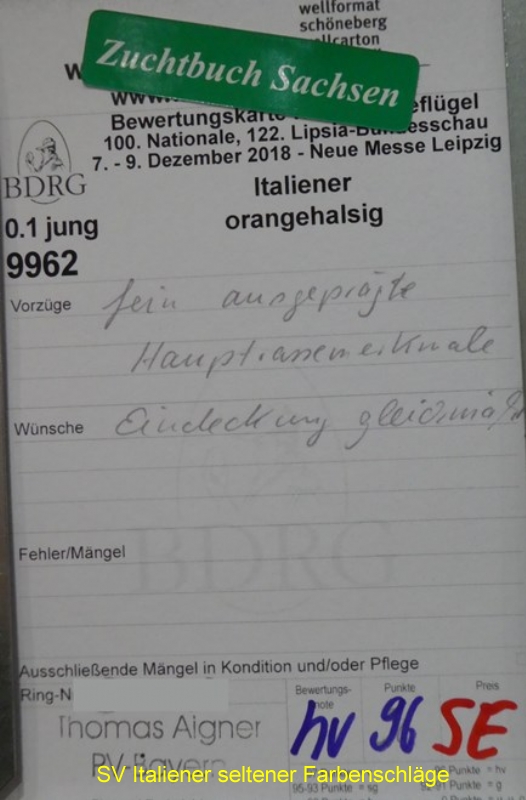 wellformat
schöneberg
wellcarton
Zuchtbuch Sachsen
Bewertungskarte
100. Nationale, 122. Lipsia-Bundesschau
7. - 9. Dezember 2018 - Neue Messe Leipzig
BDRG
Italiener
orangehalsig
0.1 jung
9962
Vorzüge fein ausgeprägte
Hauptrassemerkmale
Wünsche Eindeckung
BDRG
Fehler/Mängel
Ausschließende Mängel in Kondition und/oder Pflege
Ring-N
Bewertungs-
note
Punkte
Preis
hv 96 SE
Thomas Aigner
PV-Bayern
SV Italiener seltener Farbenschläge
Punkte = hv
95-93 Punkte = sg
91 Punkte = g